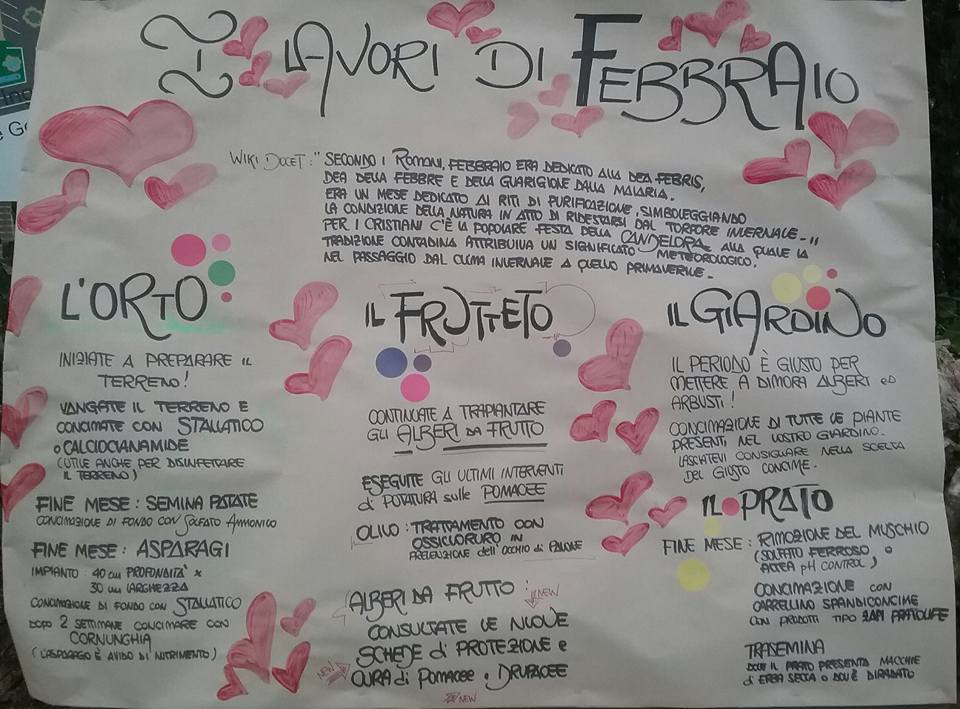 I LAVORI DI FEBBRAIO
WIKI DOCET: "SECONDO I ROMANI, FEBBRAIO ERA DEDICATO ALLA DEA FEBRIS,
DEA DELLA FEBBRE E DELLA GUARIGIONE DALLA MALARIA.
ERA UN MESE DEDICATO AI RITI DI PURIFICAZIONE, SIMBOLEGGIANDO
LA CONDIZIONE DELLA NATURA IN ATTO DI RIDESTARSI DAL TORPORE INVERNALE-"
PER I CRISTIANI C'È LA POPOLARE FESTA DELLA CANDELORA ALLA QUALE LA
TRADIZIONE CONTADINA ATTRIBUIVA UN SIGNIFICATO METEOROLOGICO.
NEL PASSAGGIO DAL CLIMA INVERNALE A QUELLO PRIMAVERILE.
L'ORTO
INIZIATE A PREPARARE IL
TERRENO!
VANGATE IL TERRENO E
CONCIMATE CON STALLATICO
o CALCIOCIANAMIDE
(UTILE ANCHE PER DISINFETTARE
IL TERRENO)
FINE MESE: SEMINA PATATE
CONCIMAZIONE DI FONDO CON SOLFATO AMMONICO
FINE MESE: ASPARAGI
IMPIANTO 40 cm PROFONDITÀ x
30 cm LARGHEZZA
CONCIMAZIONE DI FONDO CON STALLATICO
DOPO 2 SETTIMANE CONCIMARE CON
CORNUNGHIA
(L'ASPARAGO È AVIDO DI NUTRIMENTO)
IL FRUTTETO
CONTINUATE A TRAPIANTARE
GLI ALBERI DA FRUTTO
ESEGUITE GLI ULTIMI INTERVENTI
di POTATURA sulle POMACEE
OLIVO: TRATTAMENTO CON
OSSICLORURO IN
PREVENZIONE dell'OCCHIO di PAVONE
ALBERI DA FRUTTO: NEW
CONSULTATE LE NUOVE
SCHEDE di PROTEZIONE e
NEW CURA di POMACEE e DRUPACEE
NEW
IL GIARDINO
IL PERIODO È GIUSTO PER
METTERE A DIMORA ALBERI ED
ARBUSTI!
CONCIMAZIONE DI TUTTE LE PIANTE
PRESENTI NEL VOSTRO GIARDINO.
LASCIATEVI CONSIGLIARE NELLA SCELTA
DEL GIUSTO CONCIME.
IL PRATO
FINE MESE: RIMOZIONE DEL MUSCHIO
(SOLFATO FERROSO, o
ACTEA pH CONTROL)
CONCIMAZIONE CON
CARRELLINO SPANDICONCIME
CON PRODOTTI TIPO ZAPI PRATOLIFE
TRASEMINA
DOVE IL PRATO PRESENTA MACCHIE
di ERBA SECCA o DOV'È DIRADATO